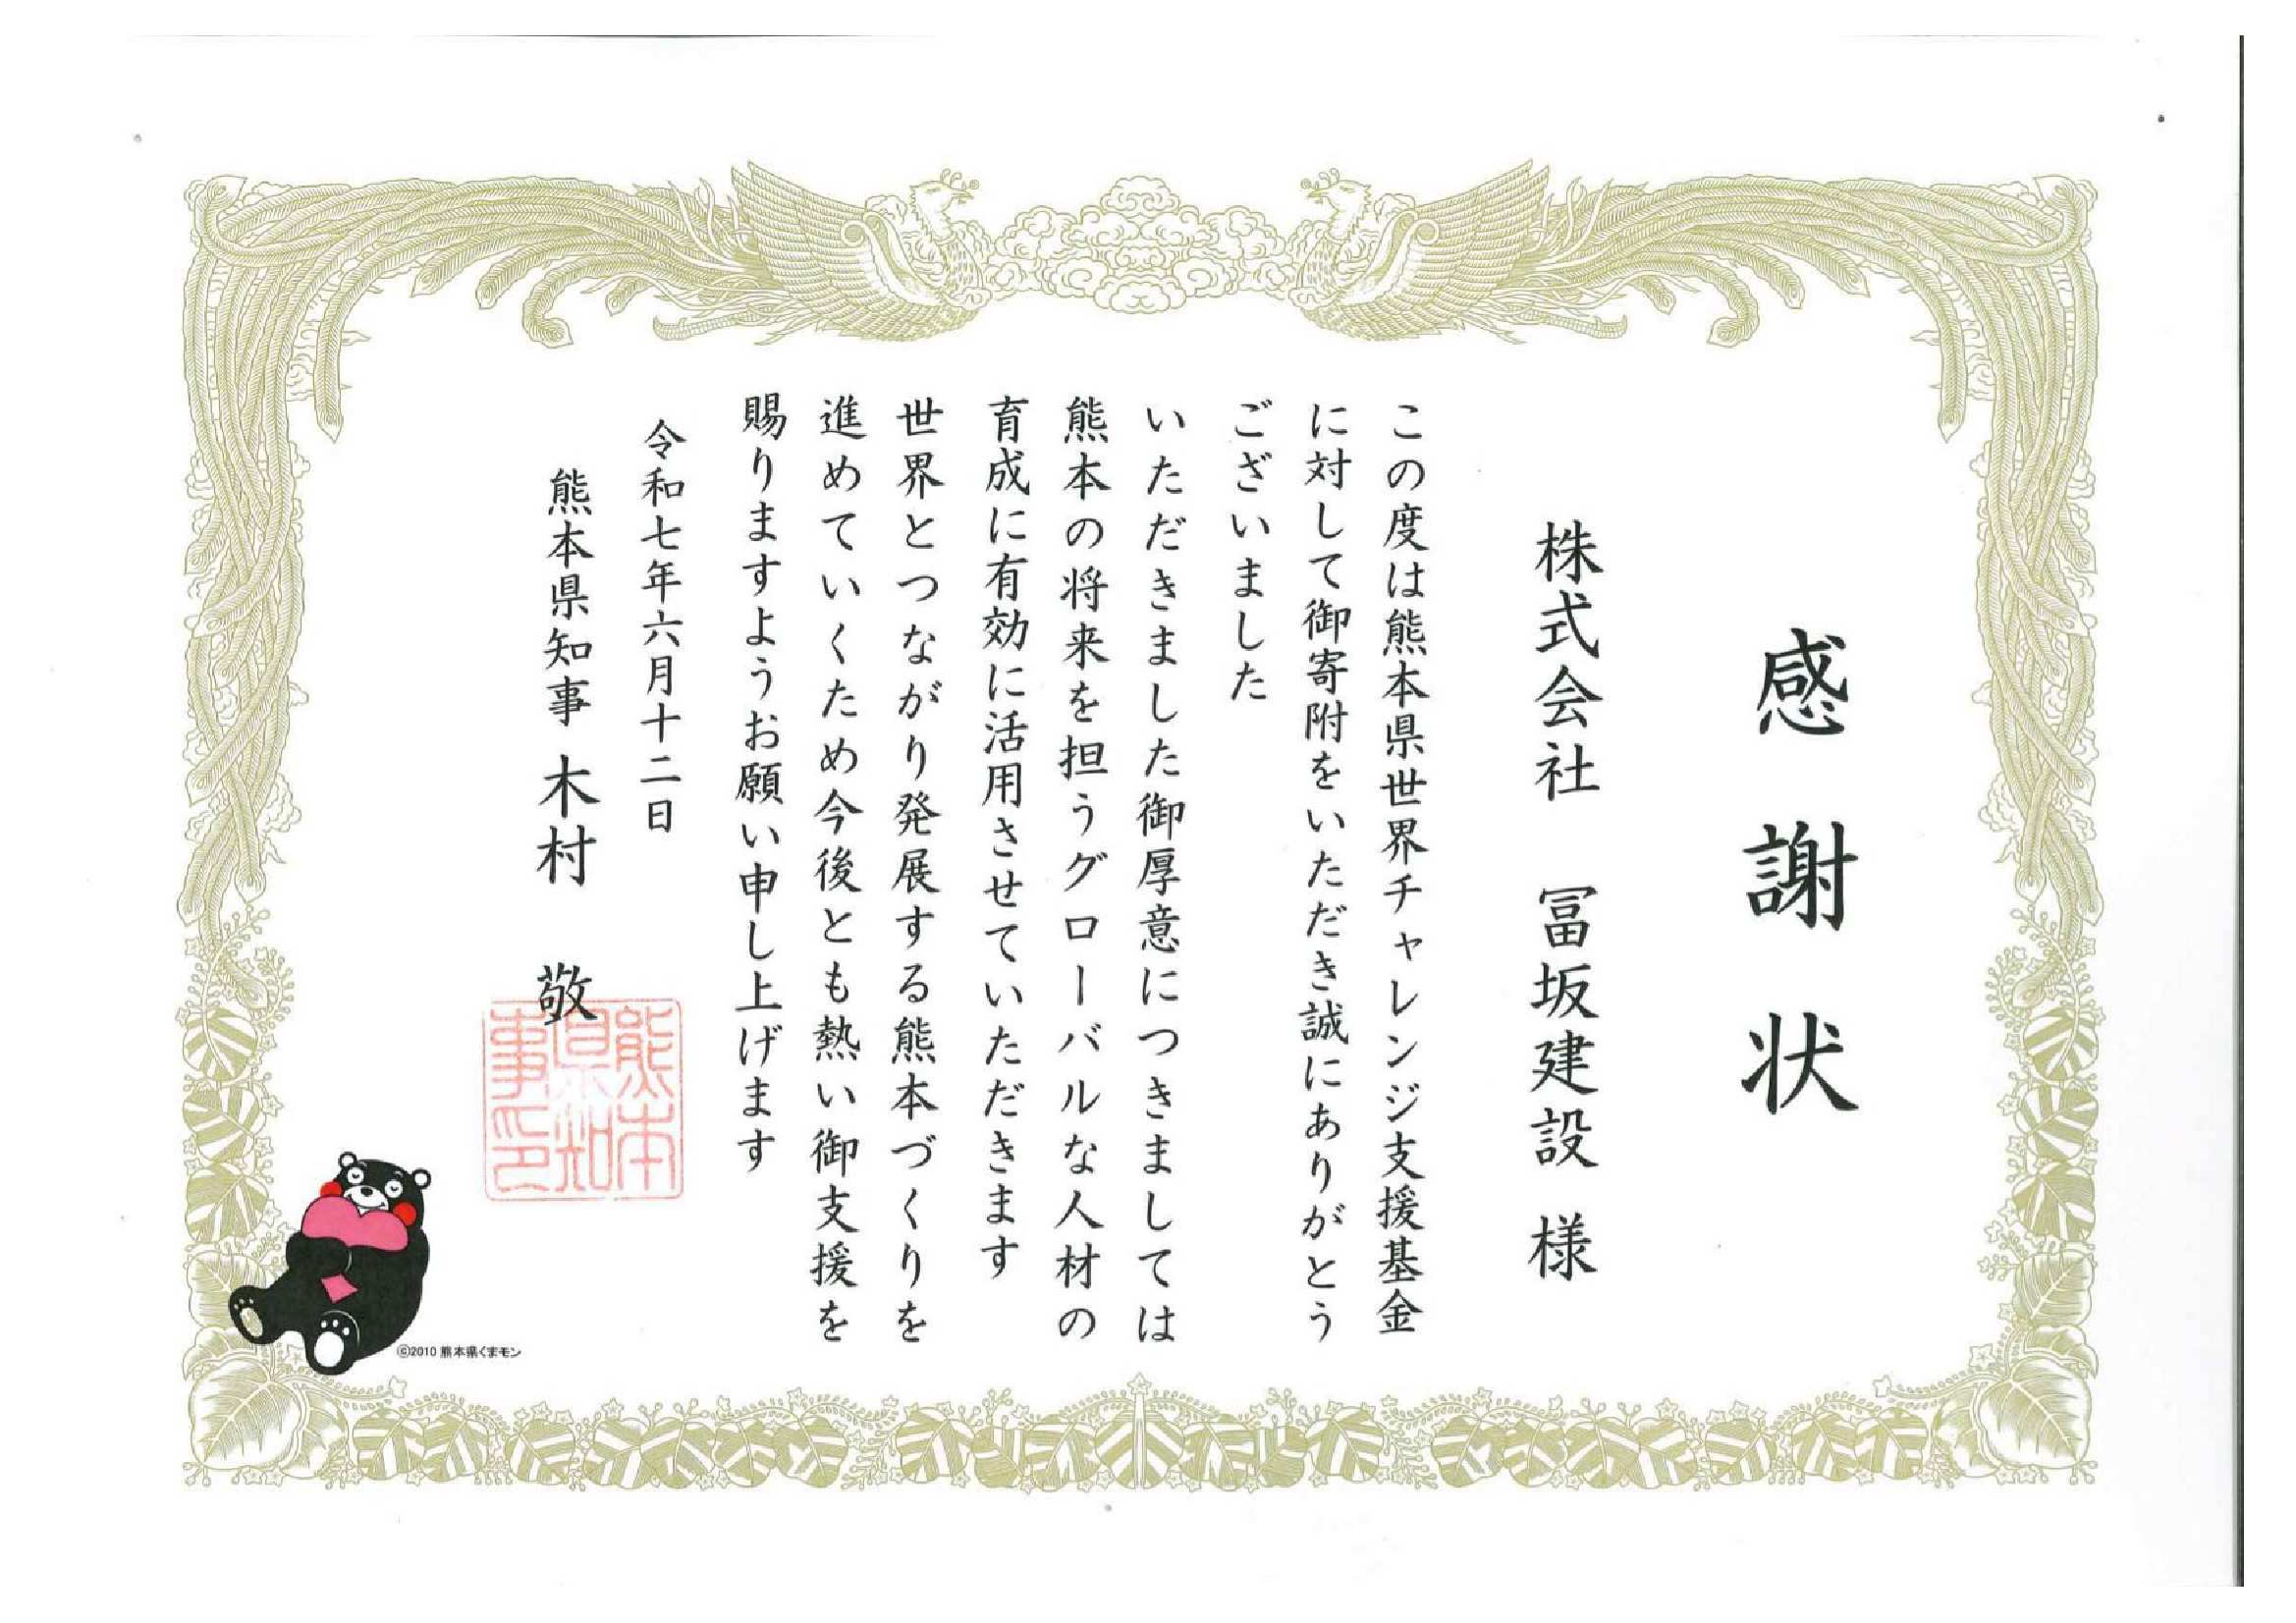 感謝状
株式会社　冨坂建設　様
この度は熊本県世界チャレンジ支援基金
に対して御寄附をいただき誠にありがとう
ございました
いただきました御厚意につきましては
熊本の将来を担うグローバルな人材の
育成に有効に活用させていただきます
世界とつながり発展する熊本づくりを
進めていくため今後とも熱い御支援を
賜りますようお願い申し上げます
令和七年六月十二日
熊本県知事　木村　敬
熊本県知事印
©2010 熊本県くまモン